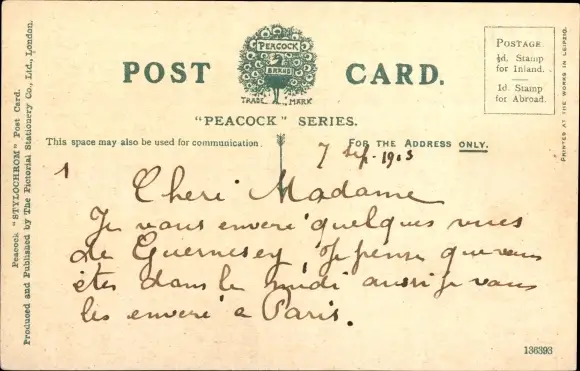 POST CARD.
PEACOCK
BRAND
TRADE MARK
"PEACOCK" SERIES.
POSTAGE
½d. Stamp
for Inland.
1d. Stamp
for Abroad.
This space may also be used for communication.
FOR THE ADDRESS ONLY.
7 Sep. 1903
1
Cheri Madame
Je vous enveré quelques vues
de Guernesey, Je pense que vous
étes dans le midi aussi je vous
les enveré a Paris.
136393
Peacock "STYLOCHROM" Post Card.
Produced and Published by The Pictorial Stationery Co., Ltd., London.
PRINTED AT THE WORKS IN LEIPZIG.